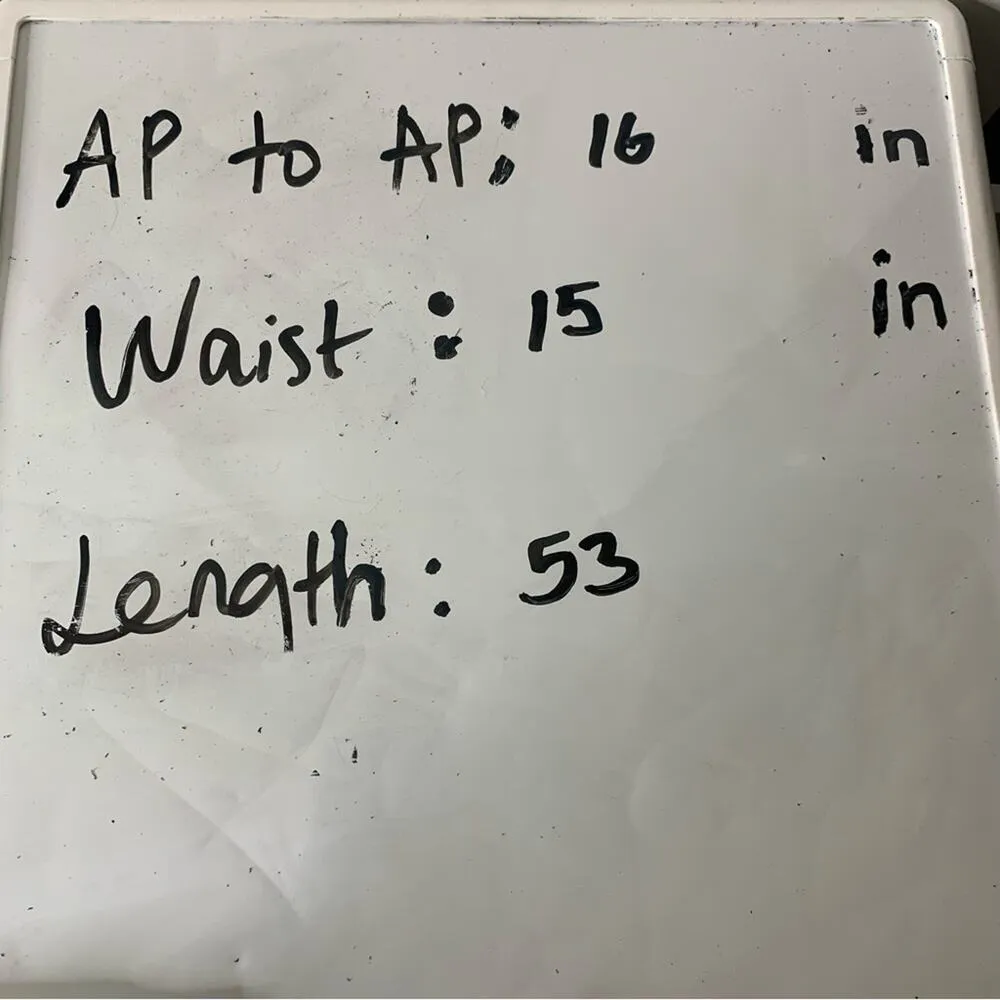 AP to AP: 16 in
Waist : 15 in
Length : 53